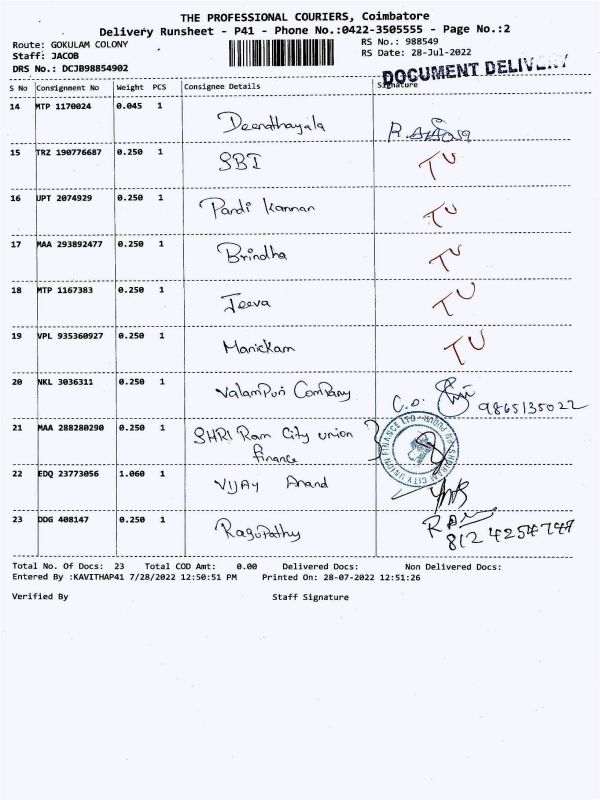 THE PROFESSIONAL COURIERS, Coimbatore
Delivery Runsheet - P41 - Phone No.:0422-3505555 - Page No.:2
Route: GOKULAM COLONY
RS No.: 988549
Staff: JACOB
RS Date: 28-Jul-2022
DRS No.: DCJB98854902
DOCUMENT DELIVERY
S No Consignment No Weight PCS Consignee Details Signature
14 MTP 1170024 0.045 1 Deendhayala
15 TRZ 190776687 0.250 1 SBI TU
16 UPT 2074929 0.250 1 Pandi Kannan TU
17 MAA 293892477 0.250 1 Brindha TU
18 MTP 1167383 0.250 1 Jeeva TU
19 VPL 935360927 0.250 1 Manickam TU
20 NKL 3036311 0.250 1 Valampuri Company C.O. 9865135022
21 MAA 288280290 0.250 1 SHRI Ram City union
Finance
22 EDQ 23773056 1.060 1 VIJAY Anand
23 DDG 408147 0.250 1 Ragupathy 8124254747
Total No. Of Docs: 23 Total COD Amt: 0.00 Delivered Docs: Non Delivered Docs:
Entered By :KAVITHAP41 7/28/2022 12:50:51 PM Printed On: 28-07-2022 12:51:26
Verified By Staff Signature